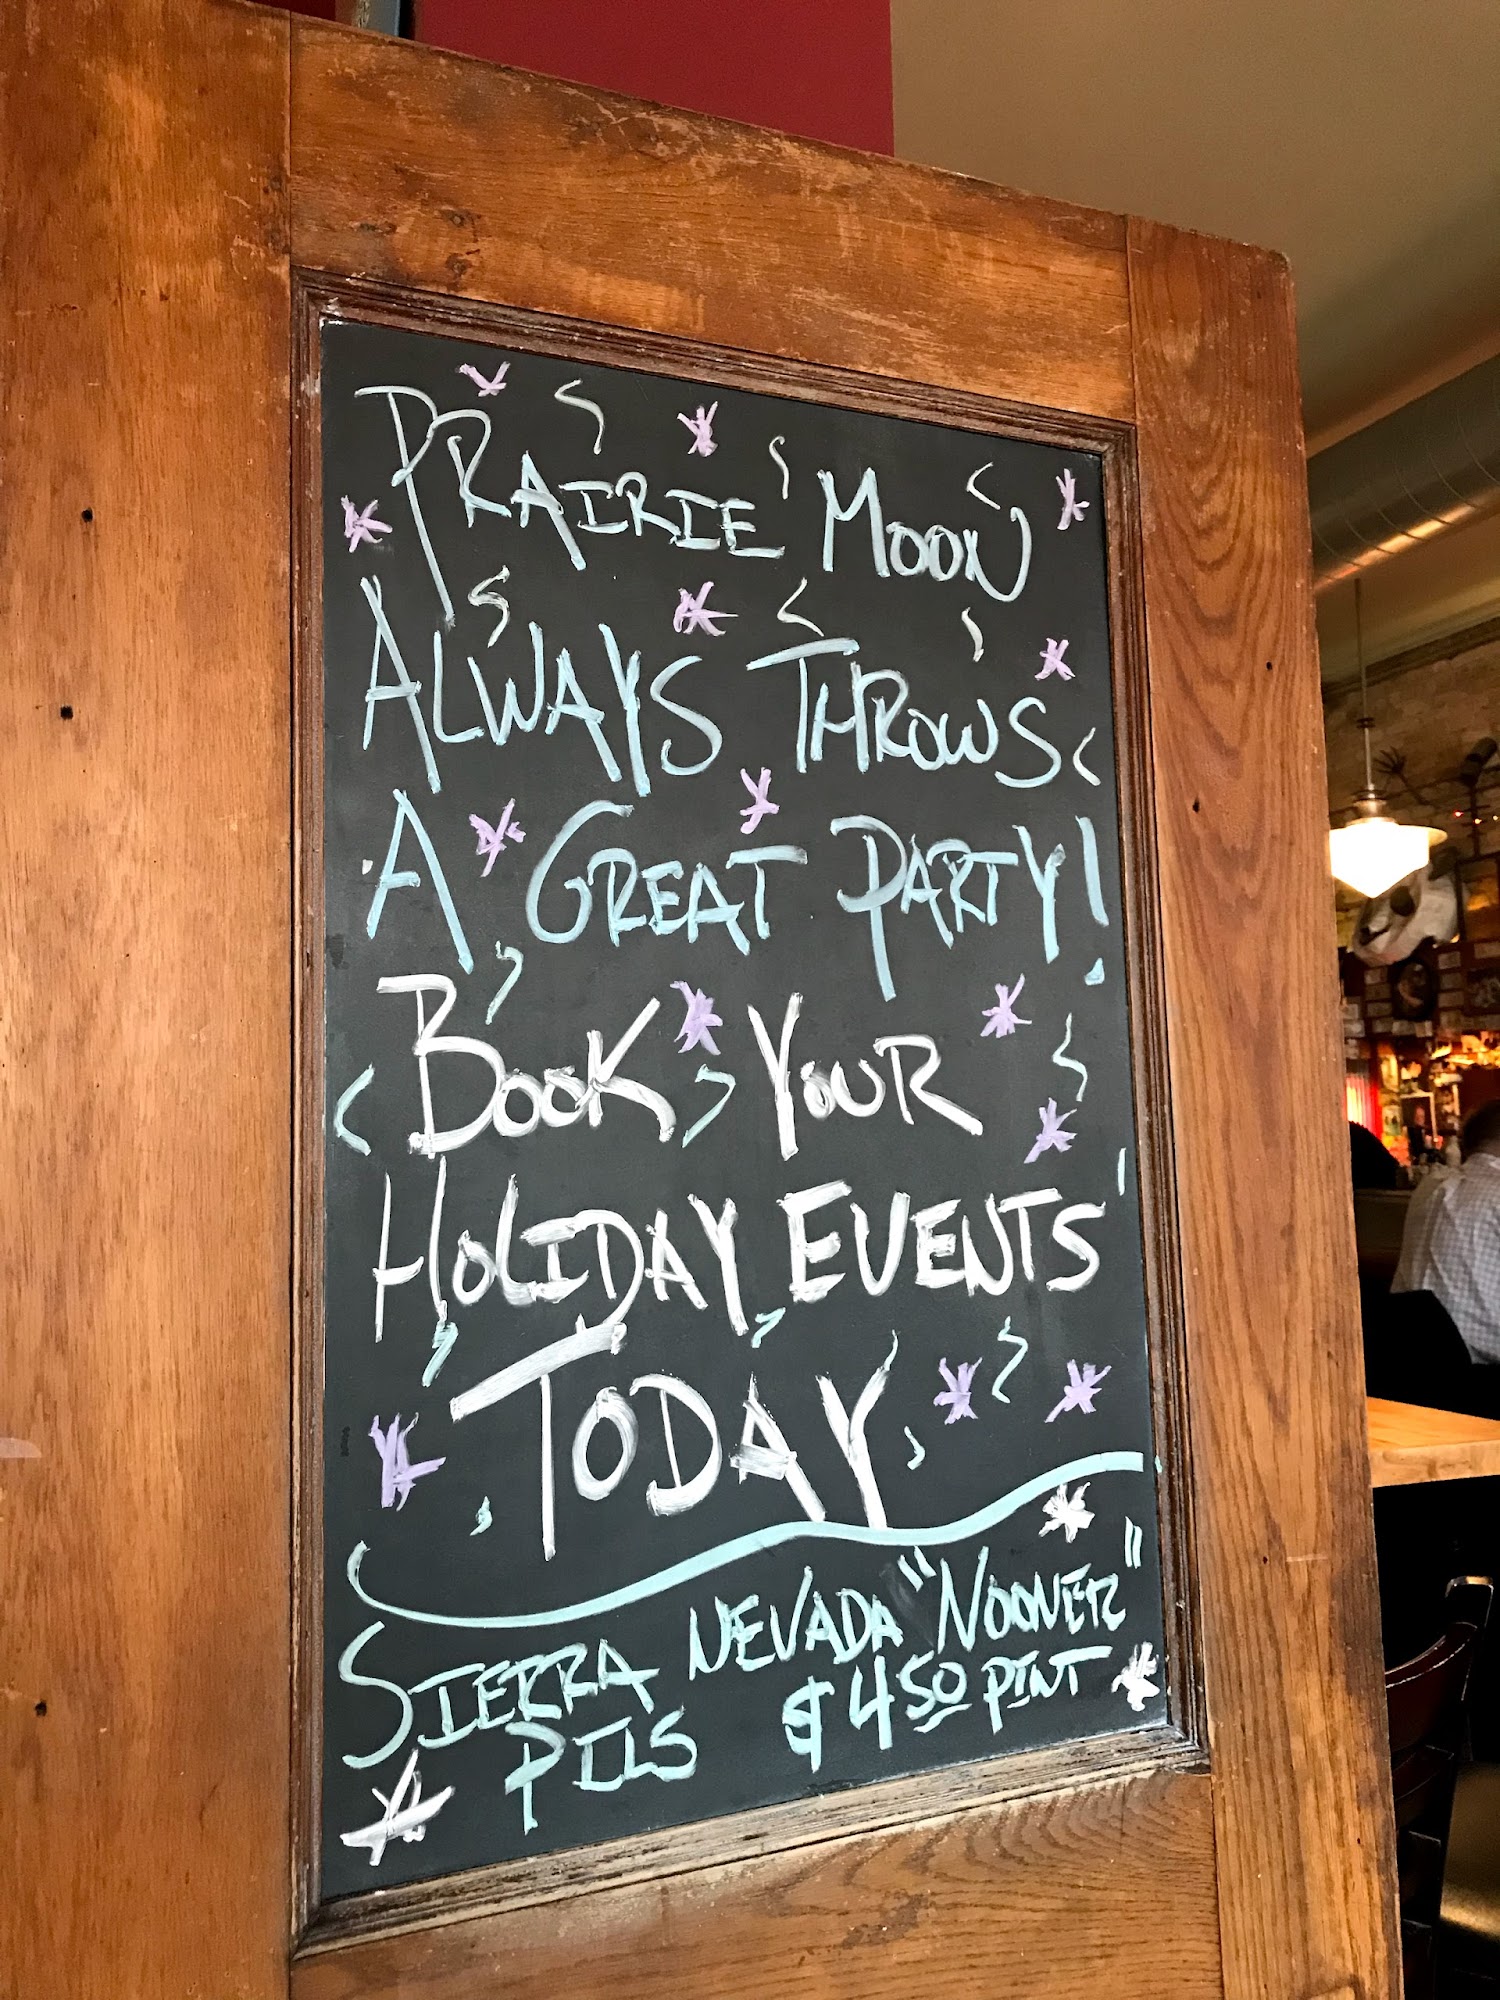 PRAIRIE MOON
ALWAYS THROWS
A GREAT PARTY!
BOOK YOUR
HOLIDAY EVENTS
TODAY
SIERRA NEVADA "NOONER"
PILS $450 PINT